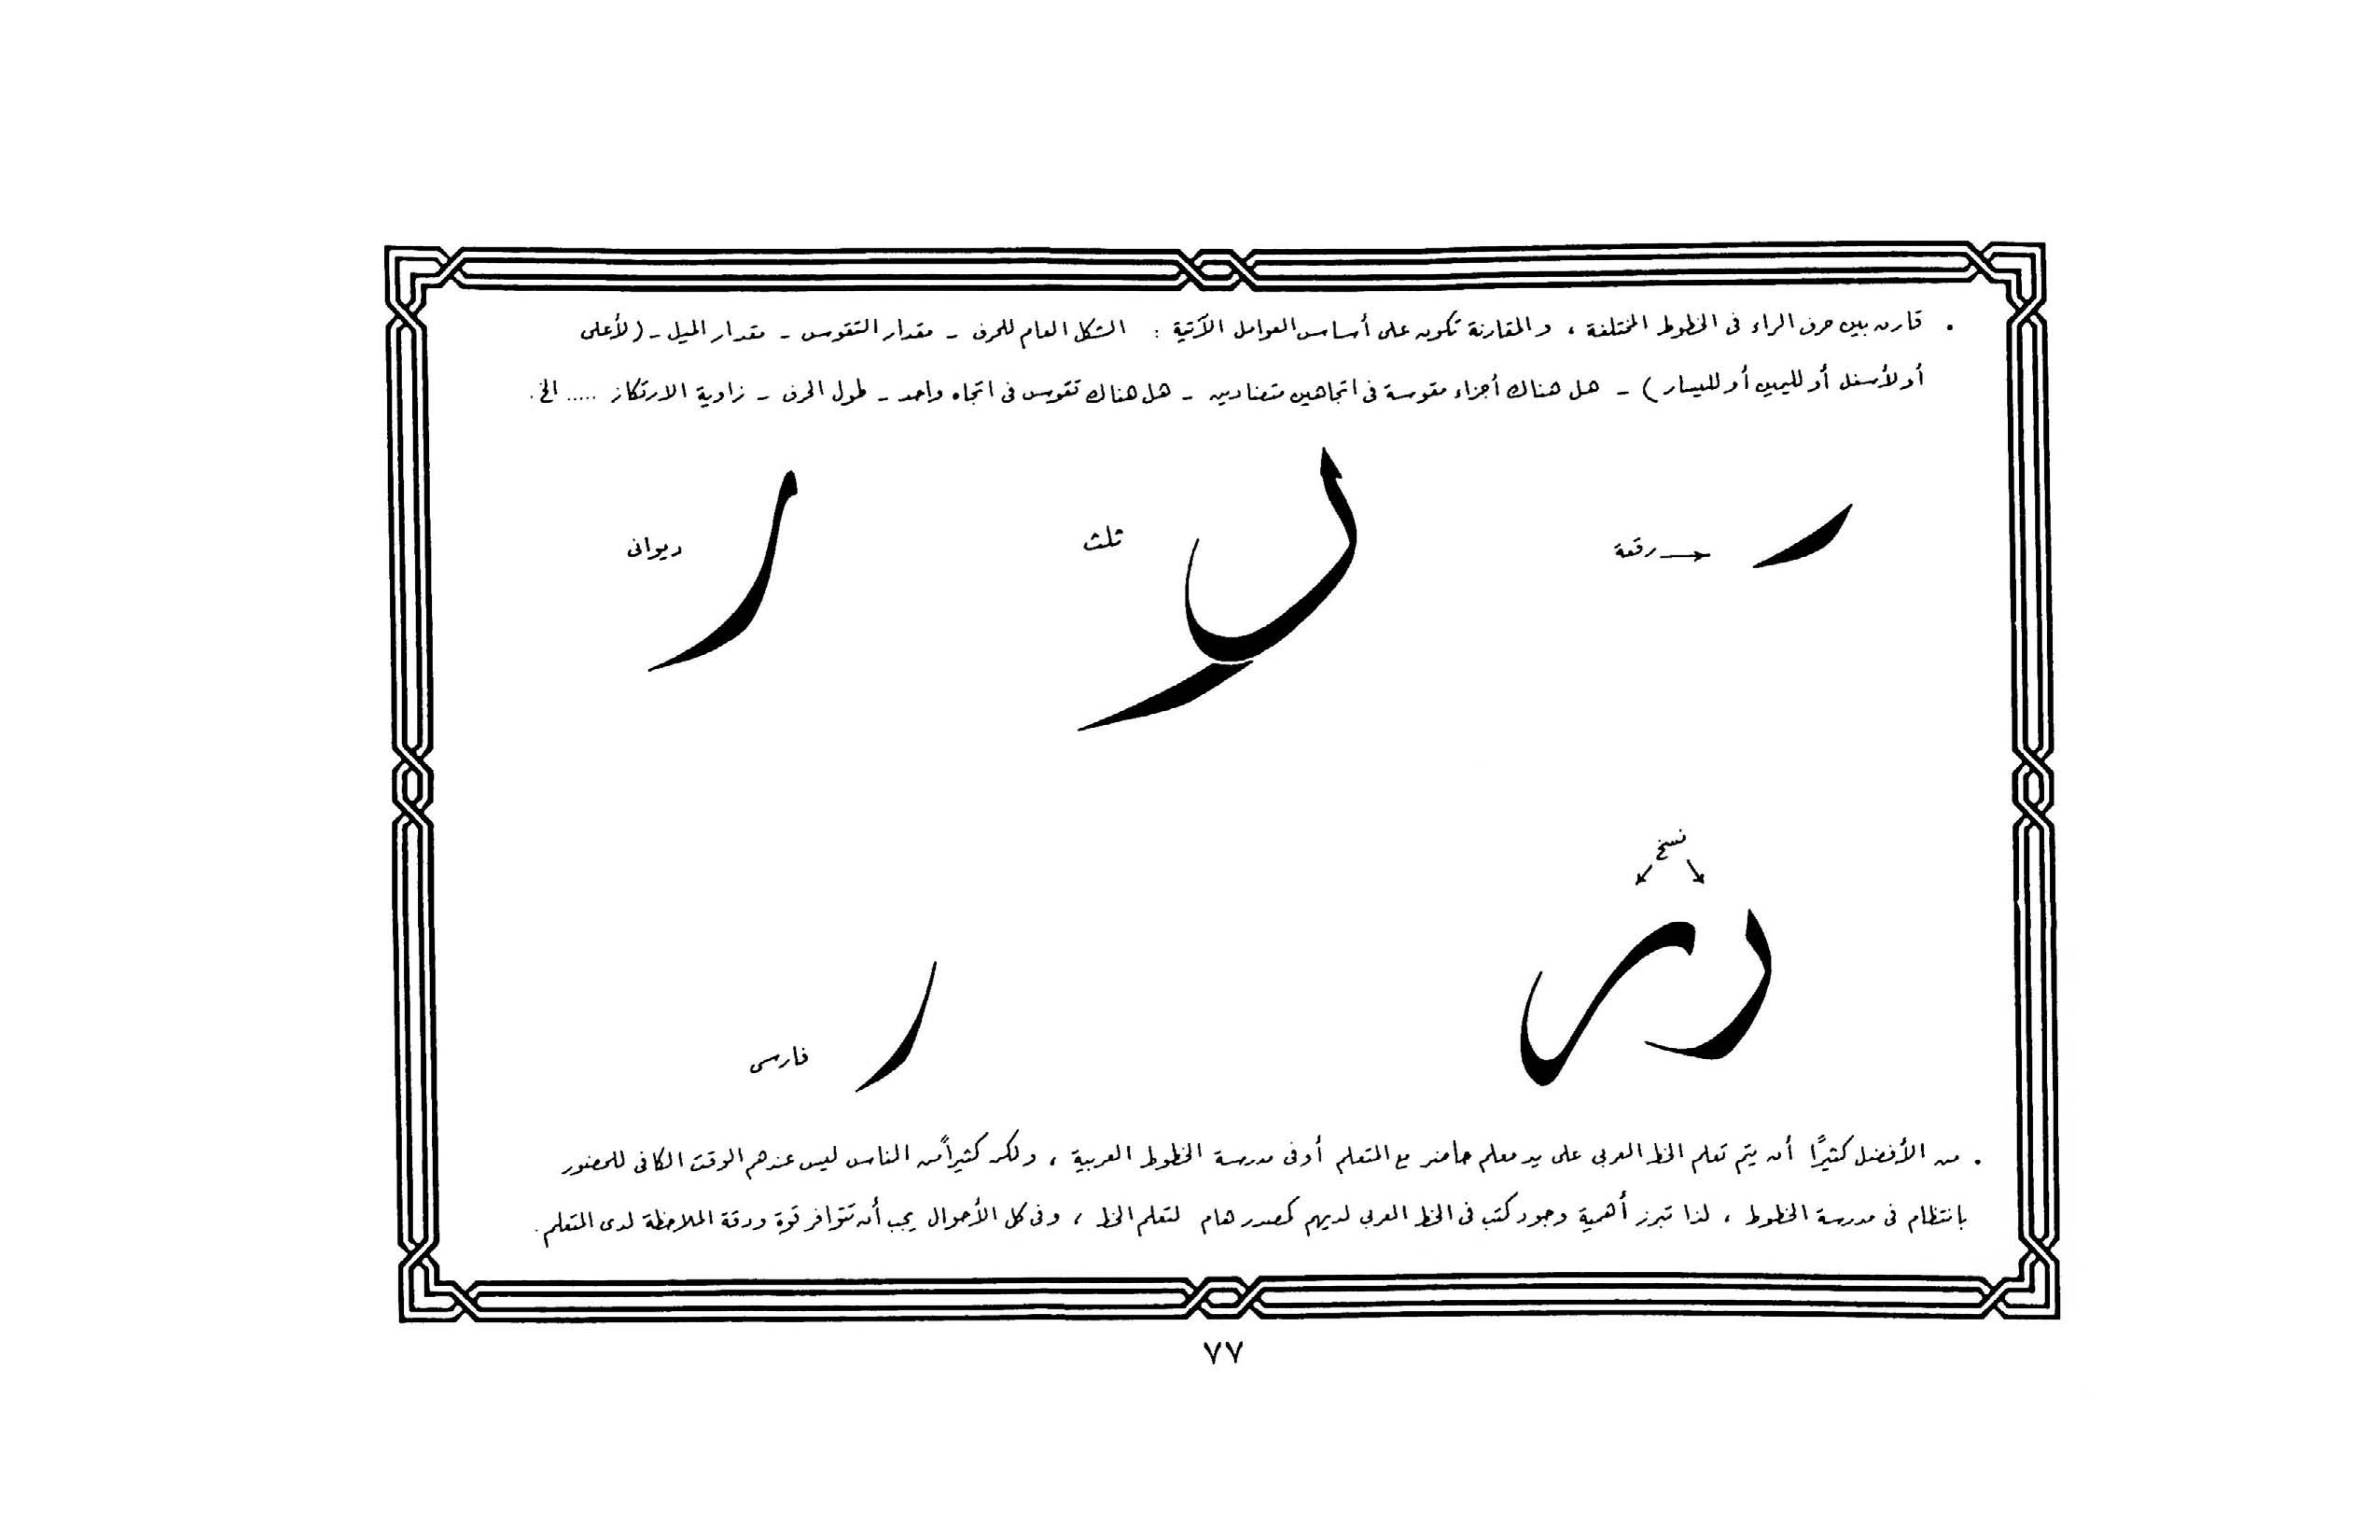 . قارن بين حرف الراء فى الخطوط المختلفة ، والمقارنة تكون على أساس العوامل الآتية : الشكل العام للحرف - مقدار التقوس - مقدار الميل - (لأعلى
أو لأسفل أو لليمين أو لليسار) - هل هناك أجزاء مقوسة فى اتجاهين متضادين - هل هناك تقوس فى اتجاه واحد - طول الحرف - زاوية الارتكاز ..... الخ.
ر رقعة
ر ثلث
ر ديوانى
نسخ
ر ر
ر فارسى
. من الأفضل كثيرًا أن يتم تعلم الخط العربى على يد معلم حاضر مع المتعلم أو فى مدرسة الخطوط العربية ، ولكن كثيراً من الناس ليس عندهم الوقت الكافى للحضور
بانتظام فى مدرسة الخطوط ، لذا تبرز أهمية وجود كتب فى الخط العربى لديهم كمصدر هام لتعلم الخط ، وفى كل الأحوال يجب أن تتوافر قوة ودقة الملاحظة لدى المتعلم.
٧٧